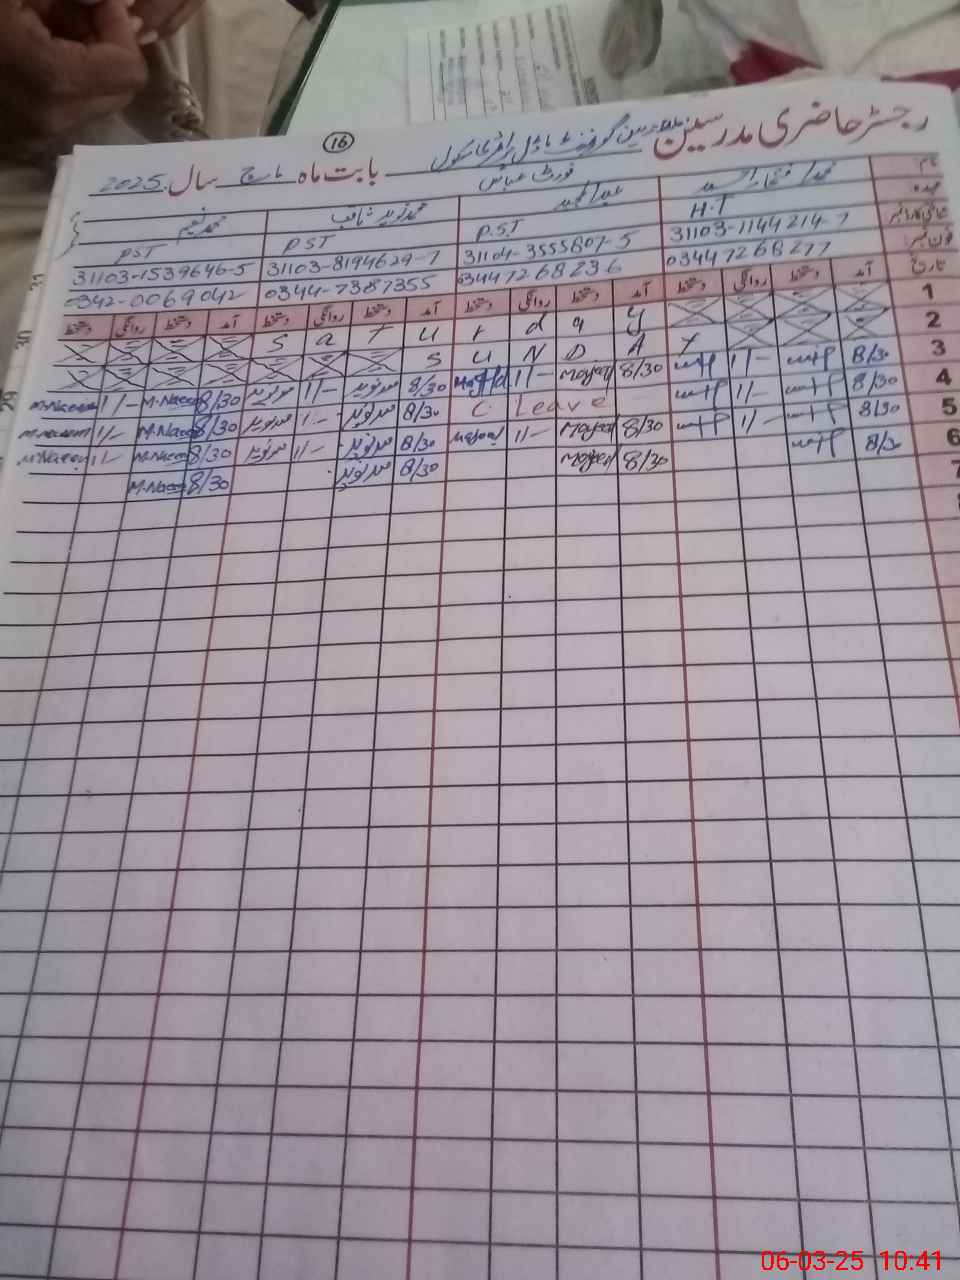 رجسٹر حاضری مدرسین گورنمنٹ ماڈل پرائمری سکول بابت ماہ مارچ سال 2025
16
فورٹ عباس
نام محمد افتخار عبدالمجید محمد نوید ثاقب محمد نعیم
عہدہ H.T P.S.T PST PST
شناختی کارڈ نمبر 31103-1144214-7 31104-3555807-5 31103-8194629-7 31103-1539646-5
فون نمبر 03447268277 03447268236 0344-7387355 0342-0069042
تاریخ آمد دستخط روانگی دستخط آمد دستخط روانگی دستخط آمد دستخط روانگی دستخط آمد دستخط روانگی دستخط
1 S a T u r d a y
2 S U N D A Y
3 8/30 1/- 8/30 Majeed 1/- 8/30 نوید 1/- نوید 8/30 M.Naeem 1/- M.Naeem
4 8/30 1/- C. Leave 8/30 نوید 1/- نوید 8/30 M.Naeem 1/- M.Naeem
5 8/30 1/- 8/30 Majeed 1/- Majeed 8/30 نوید 1/- نوید 8/30 M.Naeem 1/- M.Naeem
6 8/30 8/30 Majeed 8/30 نوید 8/30 M.Naeem
7
31
30
29
06-03-25 10.41